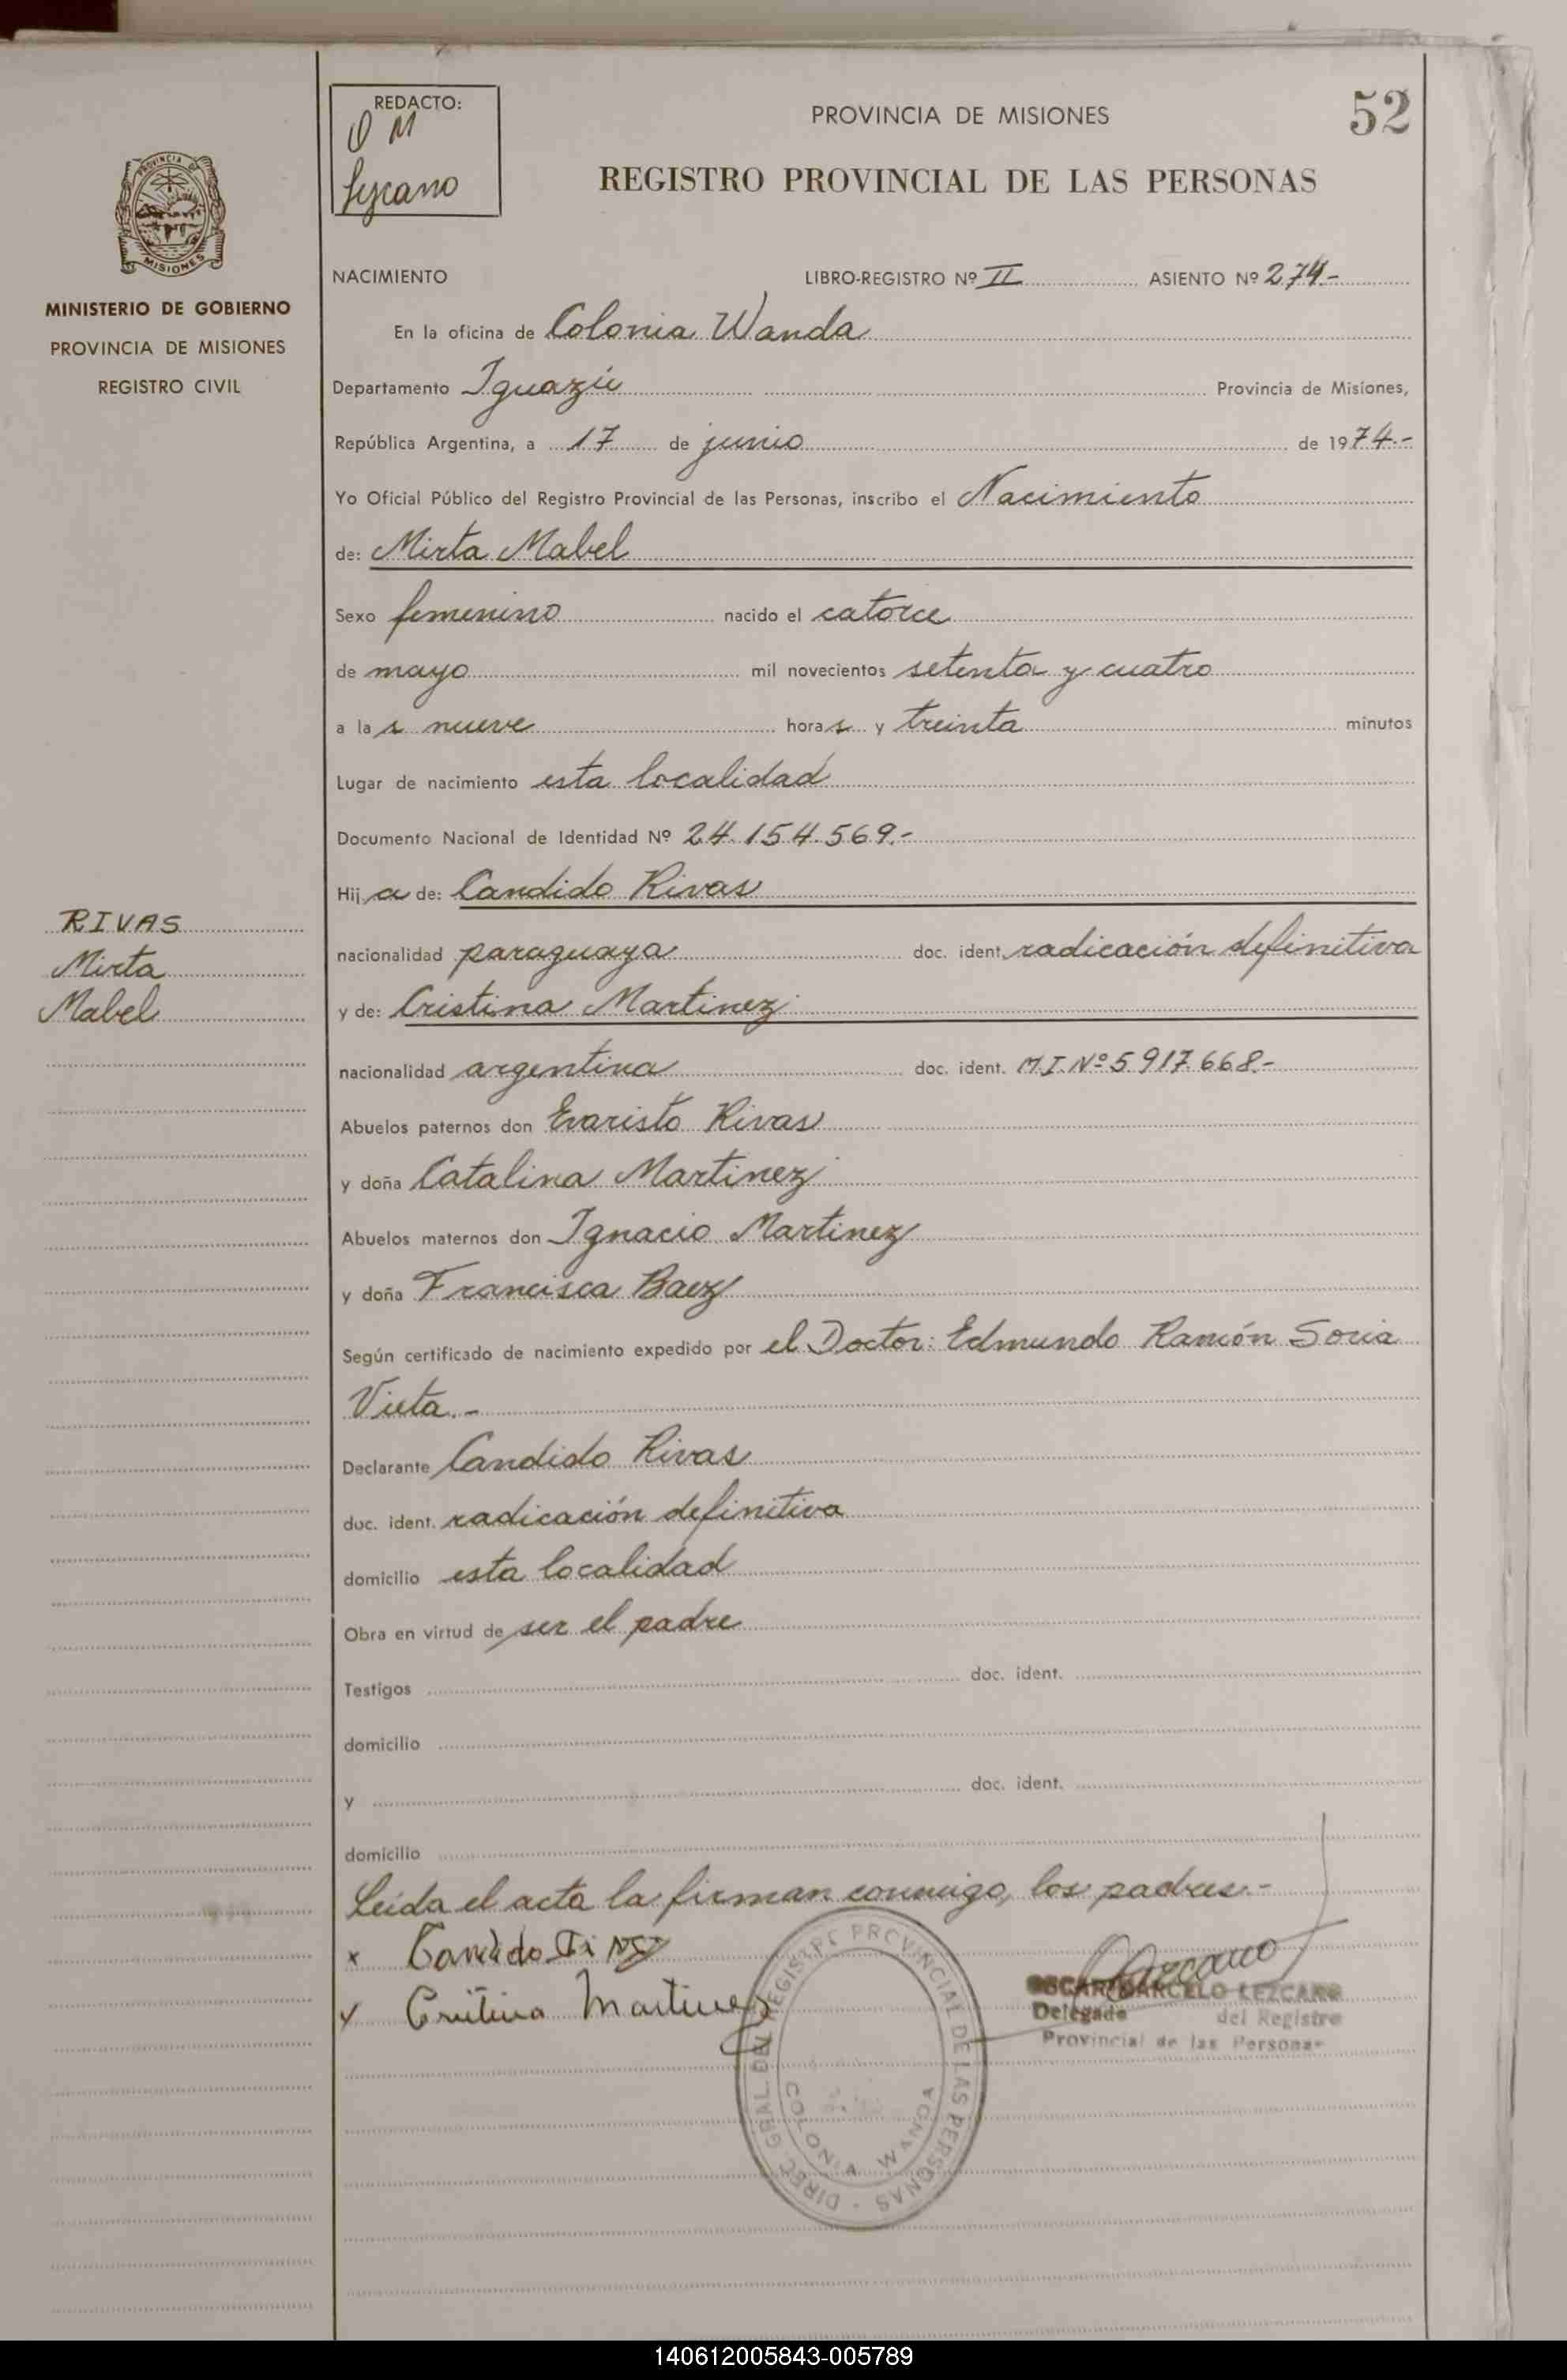 REDACTO:
O M
Lezcano
PROVINCIA DE MISIONES
52
REGISTRO PROVINCIAL DE LAS PERSONAS
PROVINCIA DE
MISIONES
MINISTERIO DE GOBIERNO
PROVINCIA DE MISIONES
REGISTRO CIVIL
NACIMIENTO LIBRO-REGISTRO Nº II ASIENTO Nº 274.-
En la oficina de Colonia Wanda
Departamento Iguazú Provincia de Misiones,
República Argentina, a 17 de junio de 1974.-
Yo Oficial Público del Registro Provincial de las Personas, inscribo el Nacimiento
de: Mirta Mabel
Sexo femenino nacido el catorce
de mayo mil novecientos setenta y cuatro
a las nueve horas y treinta minutos
Lugar de nacimiento esta localidad
Documento Nacional de Identidad Nº 24.154.569.-
Hija de: Candido Rivas
RIVAS
Mirta
Mabel
nacionalidad paraguaya doc. ident. radicación definitiva
y de: Cristina Martinez
nacionalidad argentina doc. ident. M.I. Nº 5917668.-
Abuelos paternos don Evaristo Rivas
y doña Catalina Martinez
Abuelos maternos don Ignacio Martinez
y doña Francisca Baez
Según certificado de nacimiento expedido por el Doctor: Edmundo Ramón Soria
Vieta.-
Declarante Candido Rivas
doc. ident. radicación definitiva
domicilio esta localidad
Obra en virtud de ser el padre
Testigos doc. ident.
domicilio
y doc. ident.
domicilio
Leída el acta la firman conmigo, los padres.-
x Candido
x Cristina Martinez
OSCAR MARCELO LEZCANO
Delegado del Registro
Provincial de las Personas
DIREC. GRAL. DEL REGISTRO PROVINCIAL DE LAS PERSONAS
COLONIA WANDA
140612005843-005789